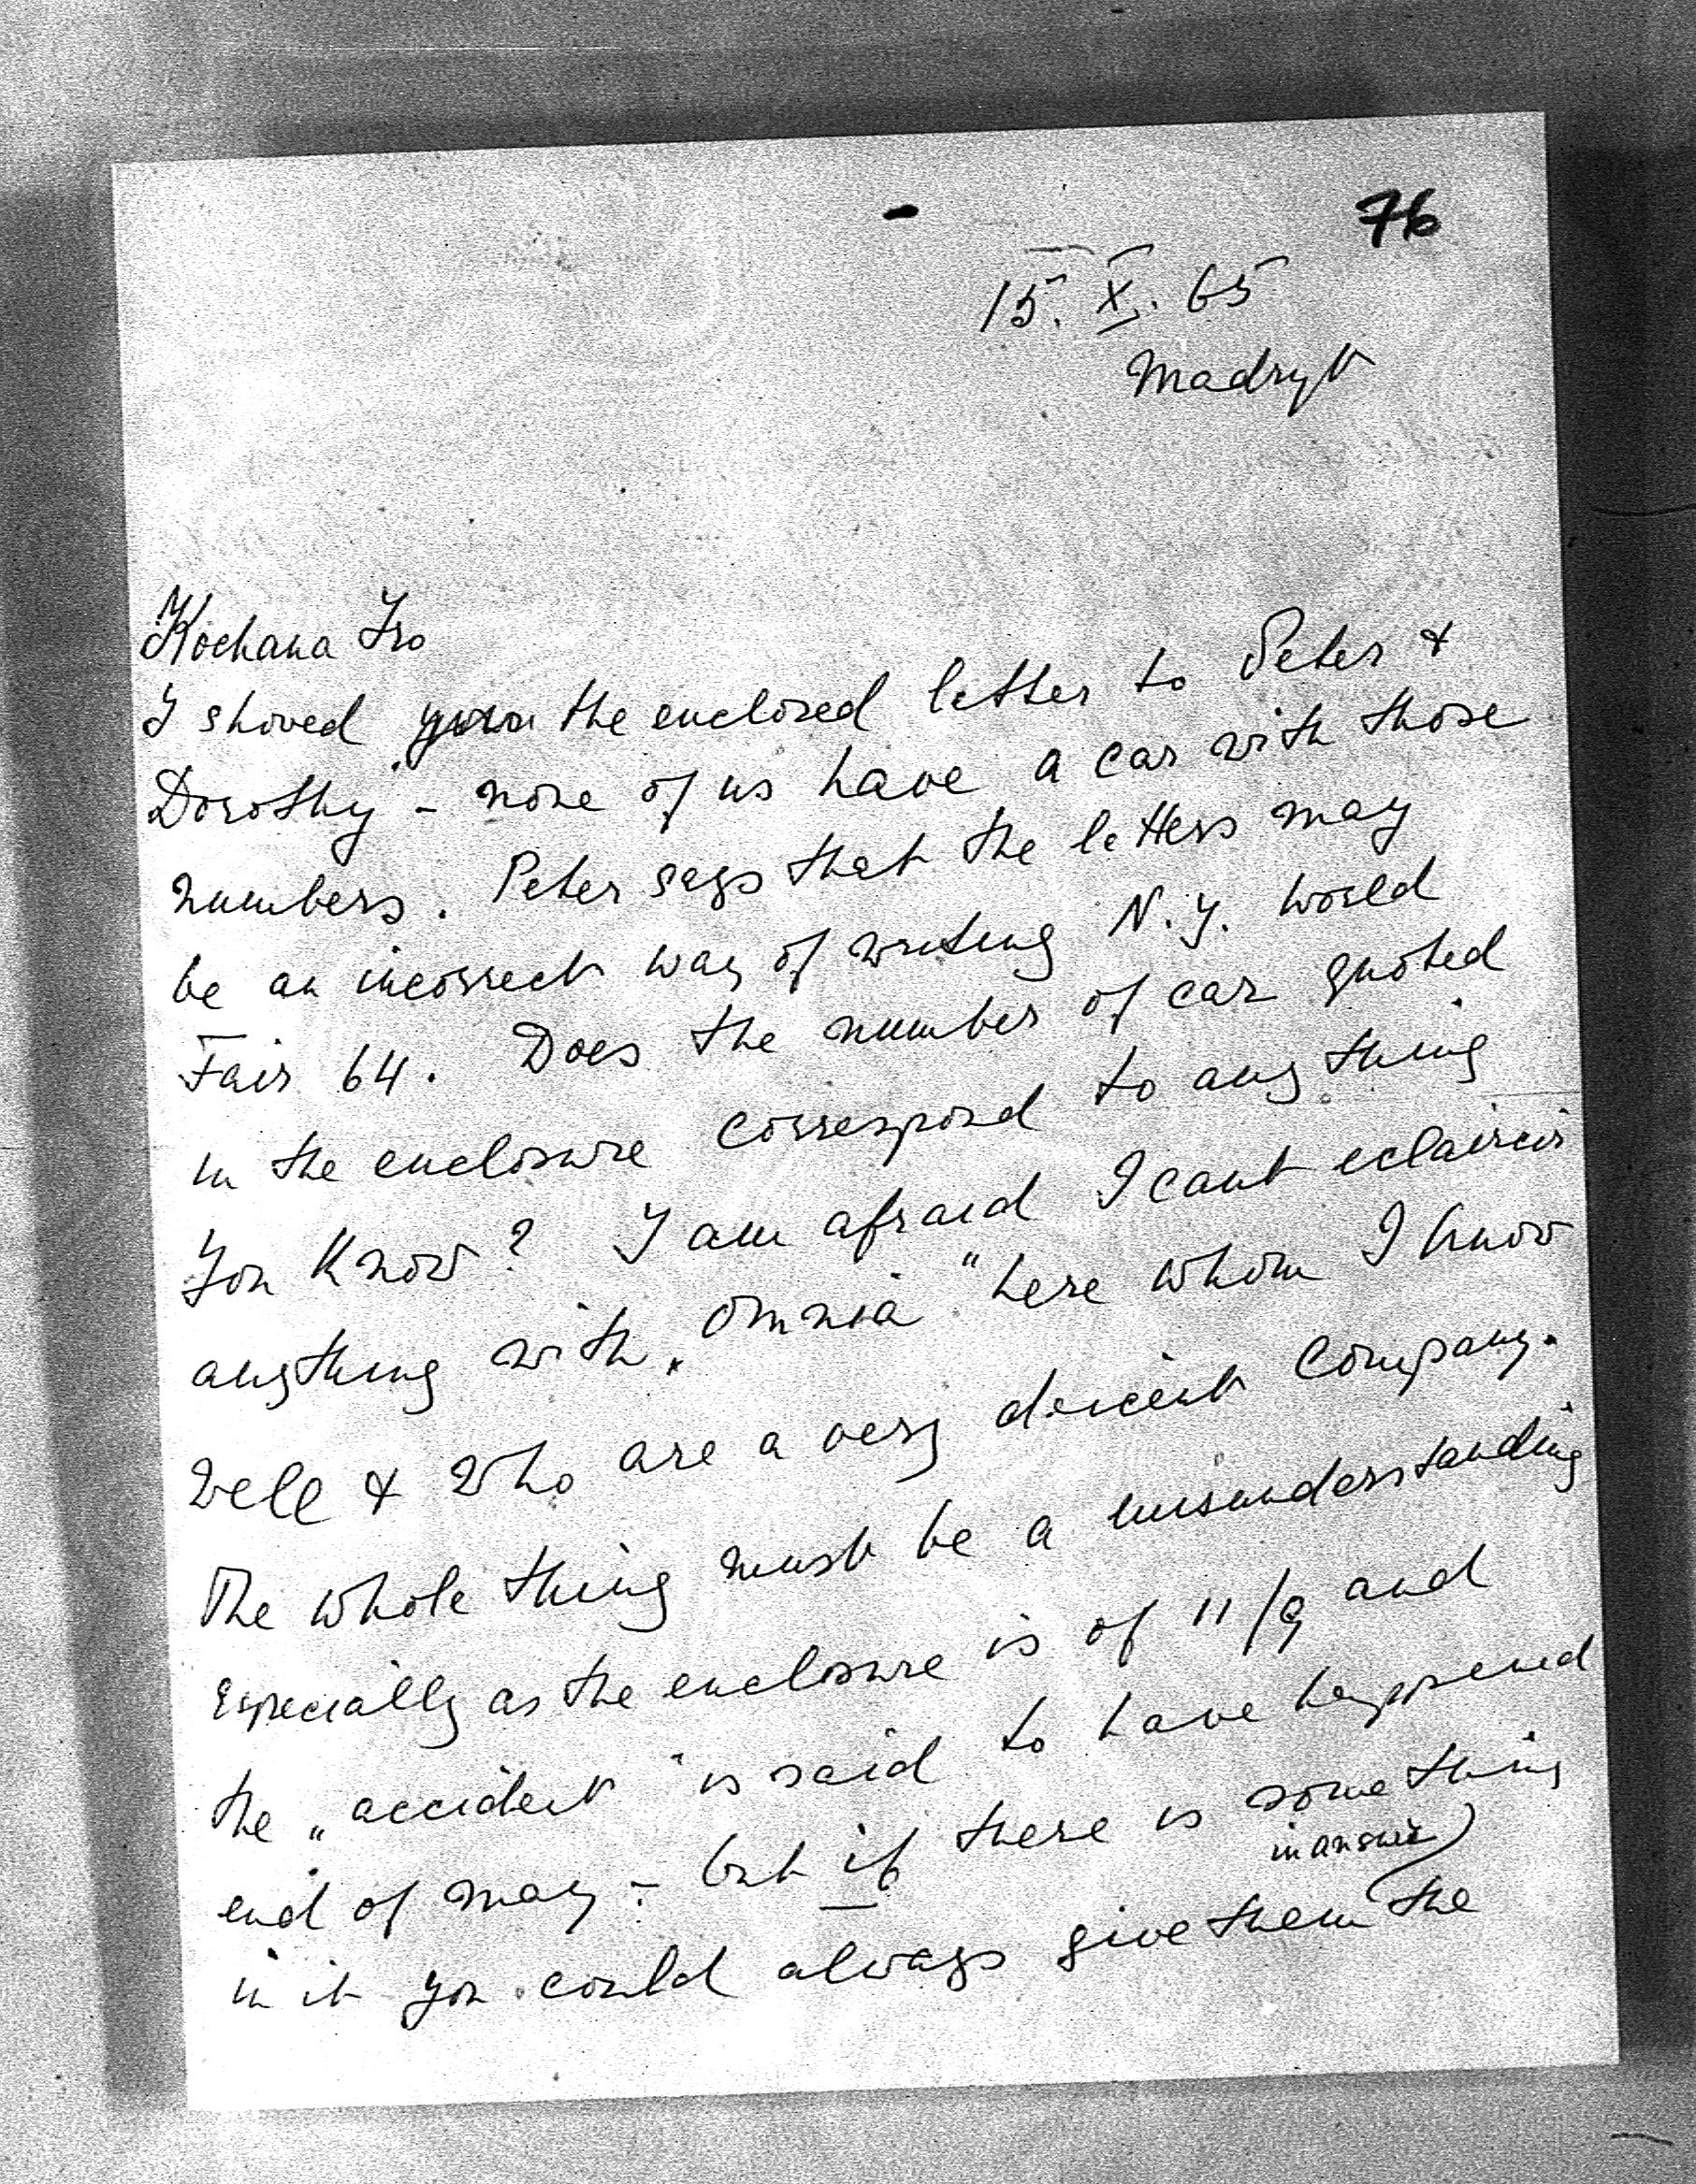 76
15. X. 65
Madryt
Kochana Iso
I showed the enclosed letter to Peter &
Dorothy - none of us have a car with those
numbers. Peter says that the letters may
be an incorrect way of writing N.Y. World
Fair 64. Does the number of car quoted
in the enclosure correspond to any thing
you know? I am afraid I cant eclaircir
anything with „Omnia" here whom I know
well & who are a very decent company.
The whole thing must be a misunderstanding
Especially as the enclosure is of 11/9 and
the „accident" is said to have happened
end of may - but if there is something
in answer
in it you could always give them the